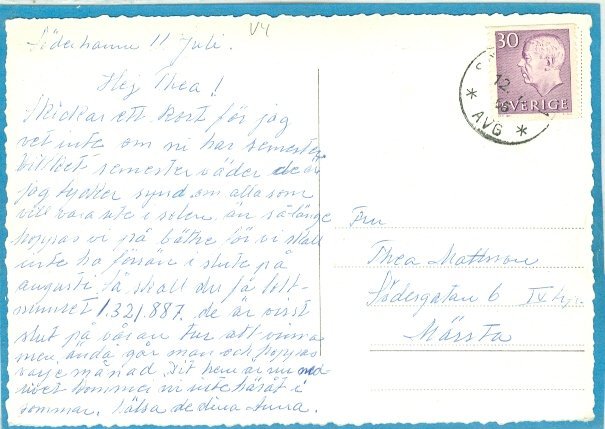 V4
Söderhamn 11 Juli.
Hej Thea!
Skickar ett kort för jag
vet inte om ni har semester
vilket semester väder de är
jag tycker synd om alla som
vill vara ute i solen än så länge
hoppas vi på bättre för vi skall
inte ha förrän i slute på
augusti så skall du få lott-
numret 1.321.887. de är visst
slut på våran tur att vinna
men ändå går man och hoppas
varje månad. Ditt hem är nu
rivet kommer ni inte häråt i
sommar. Hälsa de dina Anna.
30
SVERIGE
12.
* AVG *
Fru
Thea Mattsson
Södergatan 6 IX
Märsta